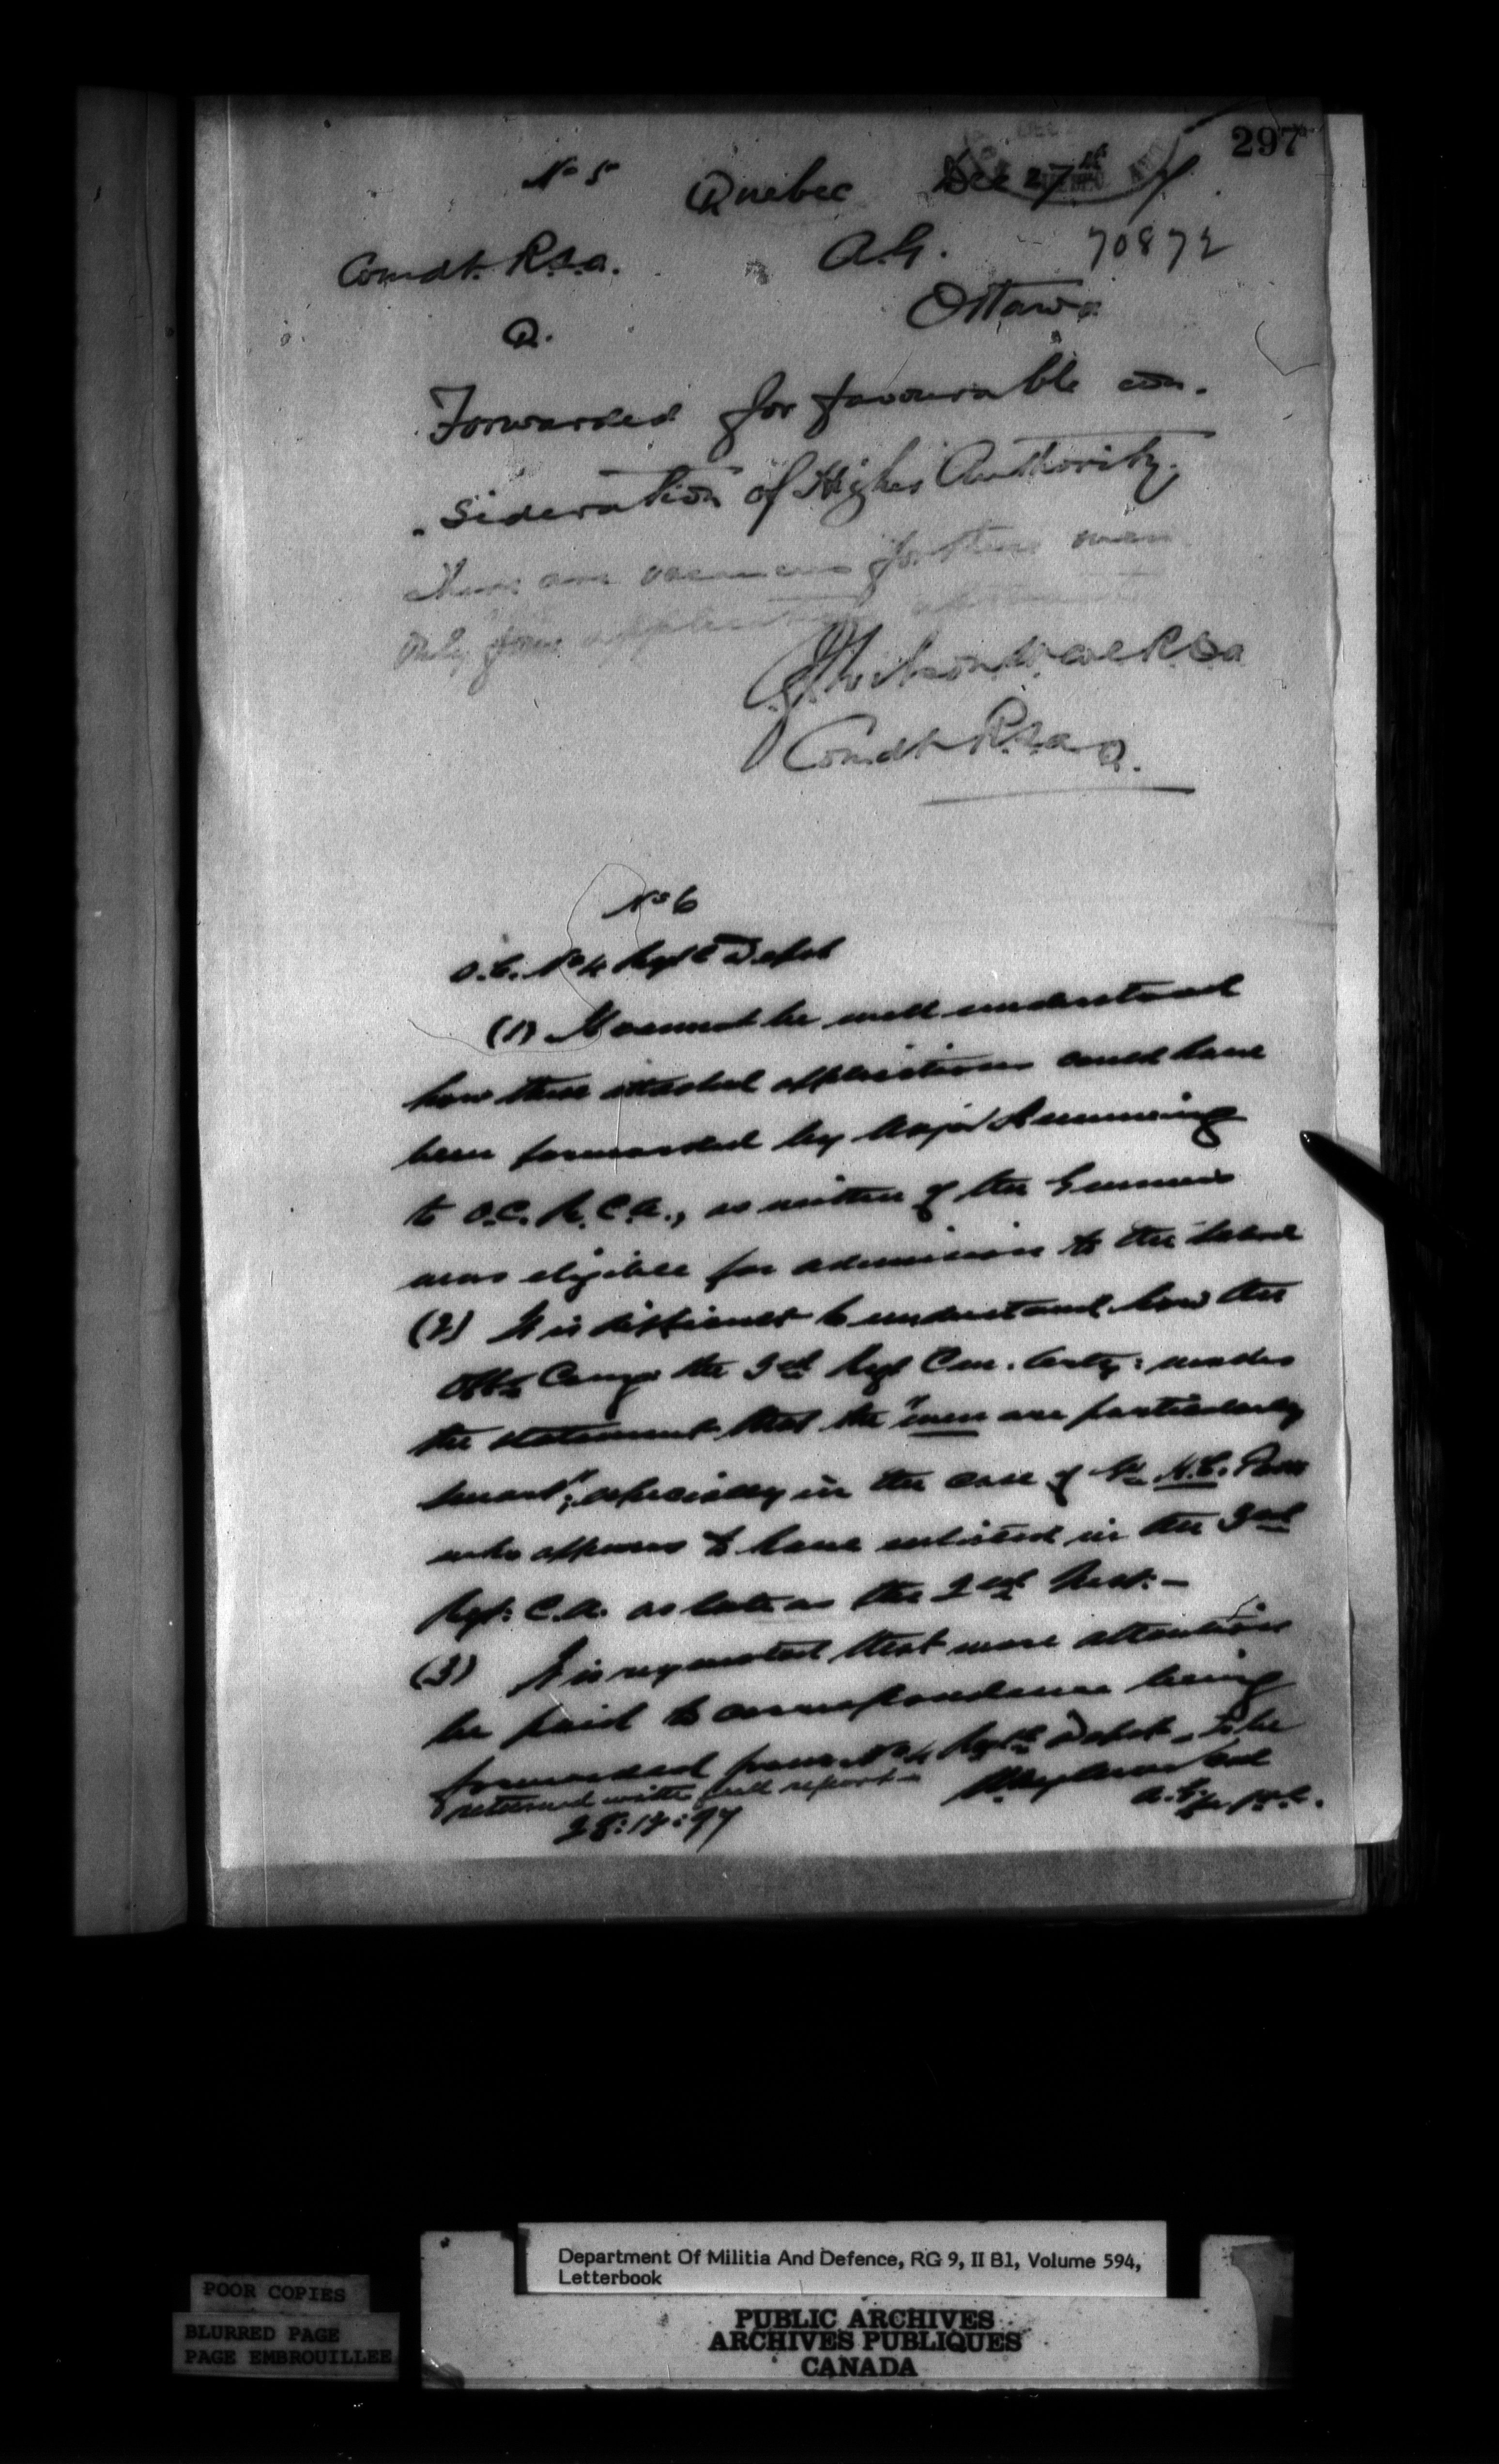 297
No 5 Quebec Dec 27th
Comdt. R.S.A. A.G. 70872
Q. Ottawa
Forwarded for favourable con-
-sideration of Higher Authority.
There are vacancies for these men
only four
Comdt R.S.A. Q.
No 6
O.C. No 4 Regtl Depot
(1) It cannot be well understood
how these attached applications could have
been forwarded by Major
to O.C. R.C.A., as neither of the Gunners
was eligible for admission to the School
(2) It is difficult to understand how the
Offr Comg the 3rd Regt Can. Arty: makes
the statement that the "men are particularly
smart", especially in the case of Gr. H.C.
who appears to have enlisted in the 3rd
Regt: C.A. as late as the 2nd Nov:-
(3) It is requested that more attention
be paid to correspondence being
forwarded from No 4 Regtl Depot - To be
returned with full report -
28:12:97 A.G.
Department Of Militia And Defence, RG 9, II B1, Volume 594,
Letterbook
POOR COPIES
BLURRED PAGE
PAGE EMBROUILLEE
PUBLIC ARCHIVES
ARCHIVES PUBLIQUES
CANADA